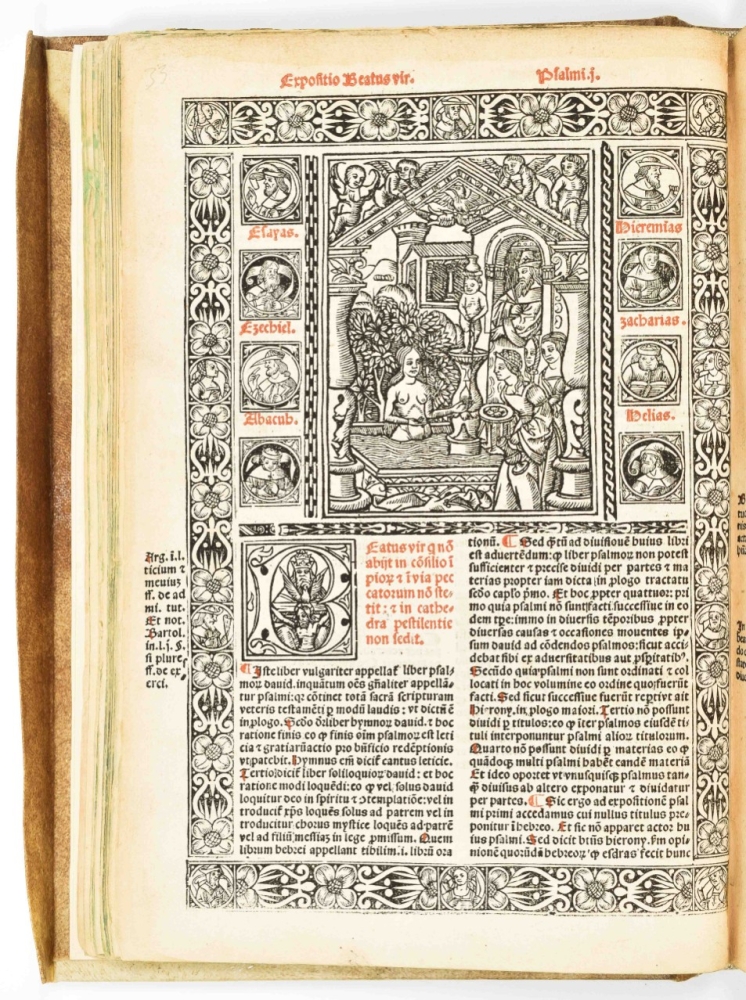 Expositio Beatus vir.
Psalmi.j.
Esayas.
Hieremias
Ezechiel.
zacharias.
Abacub.
Helias.
Arg. ī.l.
ticium ⁊
meuiuʒ
ff. de ad
mi. tut.
Et not.
Bartol.
in.l.j. §.
si plures
ff. de ex
erci.
Beatus vir q nō
abijt in cōsilio ī
pioꝝ ⁊ ī via pec
catorum nō ste-
tit: ⁊ in cathe-
dra pestilentie
non sedit.
¶ Iste liber vulgariter appellat̄ liber psal-
moꝝ dauid. inquātum oēs gn̄aliter appellā-
tur psalmi: qꝛ cōtinet totā sacrā scripturam
veteris testamēti ꝑ modū laudis : vt dictū ē
in ꝓlogo. Scđo dr̄ liber hymnoꝝ dauid. ⁊ hoc
ratione finis eo ꝙ finis oīm psalmoꝝ est leti
cia ⁊ gratiarū actio pro bn̄ficio redēptionis
vt patebit. Hymnus em̄ dicit̄ cantus leticie.
Tertio dicit̄ liber soliloquioꝝ dauid : et hoc
ratione modi loquēdi: eo ꝙ vel solus dauid
loquitur deo in spiritu ⁊ ꝯtemplatiōe: vel in
troducit̄ xp̄s loquēs solus ad patrem vel in
troducitur chorus mystice loquēs ad patrē
vel ad filiū messiaʒ in lege ꝓmissum. Quem
librum hebrei appellant tibilim .i. librū ora
tionū. ¶ Sed q̄tū ad diuisionē huius libri
est aduertēdum: ꝙ liber psalmoꝝ non potest
sufficienter ⁊ precise diuidi per partes ⁊ ma
terias propter iam dicta in ꝓlogo tractatu
scđo caplo ṗmo. Et hoc ꝓpter quattuor: pri
mo quia psalmi nō sunt facti successiue in eo
dem tꝑe: immo in diuersis tēporibus ꝓpter
diuersas causas ⁊ occasiones mouentes ip-
sum dauid ad cōdendos psalmos: sicut acci-
debat sibi ex aduersitatibus aut ꝓsꝑitatibꝰ.
Secūdo quia psalmi non sunt ordinati ⁊ col
locati in hoc volumine eo ordine quo fuerūt
facti. Sed sicut successiue fuerūt reꝑti vt ait
Hierony. in ꝓlogo maiori. Tertio nō possunt
diuidi ꝑ titulos: eo ꝙ iter psalmos eiusdē ti-
tuli interponuntur psalmi alioꝝ titulorum.
Quarto nō possunt diuidi ꝑ materias eo ꝙ
quādoqꝫ multi psalmi habēt eandē materiā
Et ideo oportet vt vnusquisqꝫ psalmus tan-
q̄ diuisus ab altero exponatur ⁊ diuidatur
per partes. ¶ Sic ergo ad expositionē psal
mi primi accedamus cui nullus titulus pre-
ponitur ī hebreo. Et sic nō apparet actor hu
ius psalmi. Sed dicit btūs hierony. ẜm opi-
nionē quorūdā hebreoꝝ ꝙ esdras fecit hunc